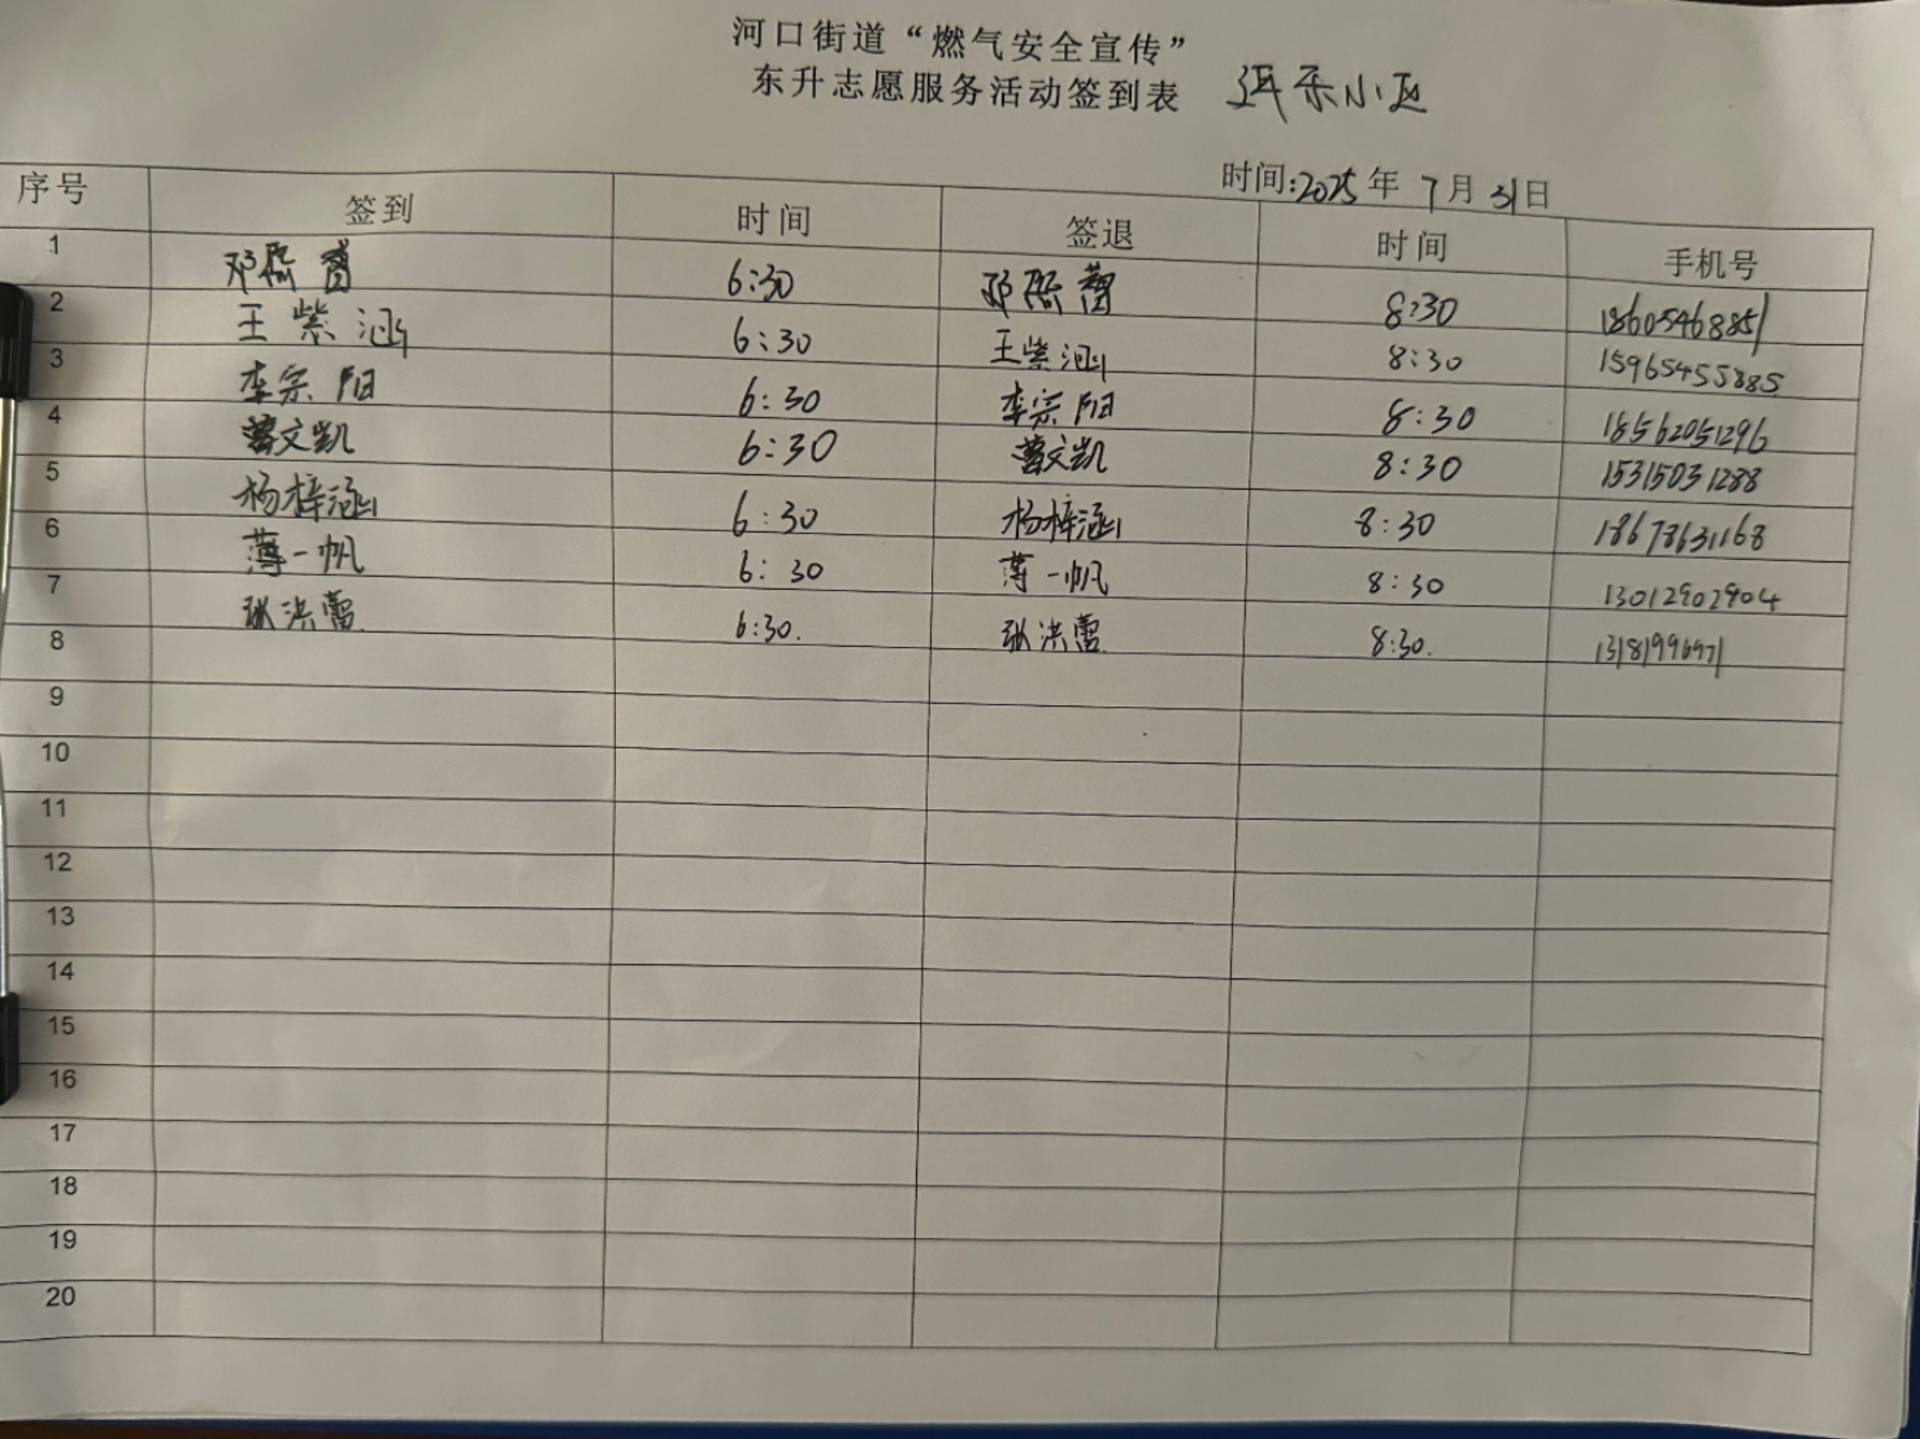 河口街道“燃气安全宣传”
东升志愿服务活动签到表 小区
时间:2025年 7月31日
序号 签到 时间 签退 时间 手机号
1 邓 6:30 邓 8:30 18605468851
2 王紫涵 6:30 王紫涵 8:30 15965455885
3 李宗阳 6:30 李宗阳 8:30 18562051296
4 曹文凯 6:30 曹文凯 8:30 15315031288
5 杨梓涵 6:30 杨梓涵 8:30 18678631168
6 薄一帆 6:30 薄一帆 8:30 13012902904
7 张洪蕾 6:30. 张洪蕾 8:30.
8
9
10
11
12
13
14
15
16
17
18
19
20